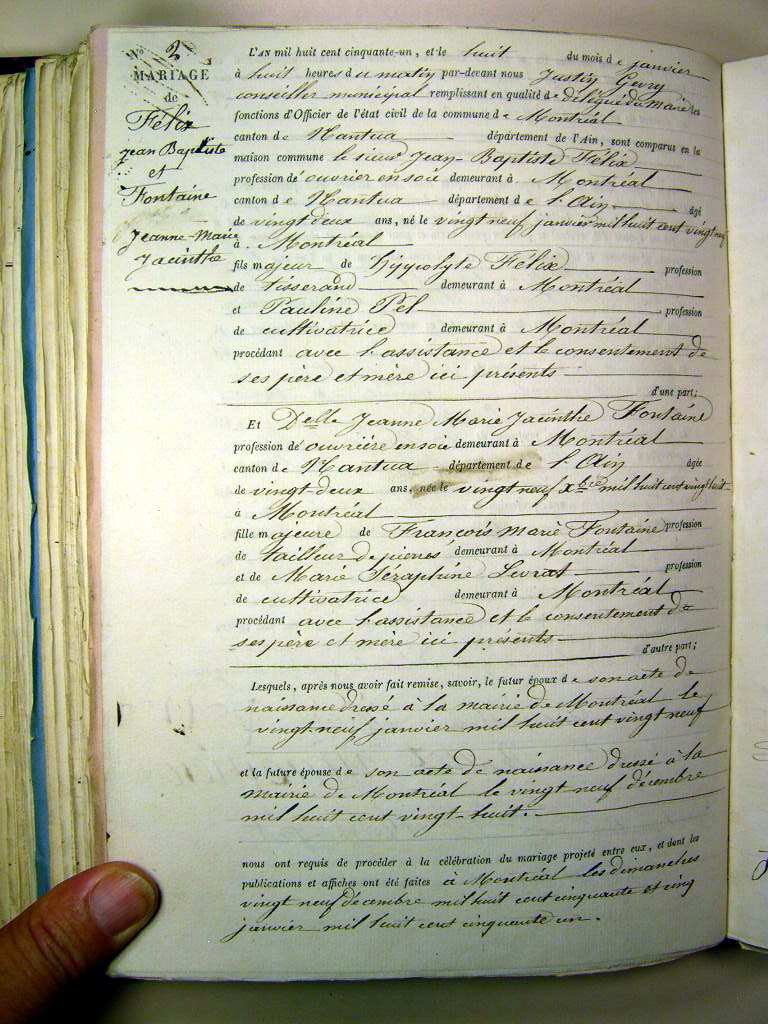 N° 2
MARIAGE
de
Félix
Jean Baptiste
et
Fontaine
Jeanne-Marie
Jacinthe
L'AN mil huit cent cinquante-un, et le huit du mois de janvier
à huit heures du matin par-devant nous Justin Gevry
conseiller municipal remplissant en qualité de délégué du maire les
fonctions d'Officier de l'état civil de la commune de Montréal
canton de Nantua département de l'Ain, sont comparus en la
maison commune le sieur Jean-Baptiste Félix
profession de ouvrier en soie demeurant à Montréal
canton de Nantua département de l'Ain âgé
de vingt deux ans, né le vingt neuf janvier mil huit cent vingt neuf
à Montréal
fils majeur de hyppolyte Félix profession
de tisserand demeurant à Montréal
et Pauline Pel profession
de cultivatrice demeurant à Montréal
procédant avec l'assistance et le consentement de
ses père et mère ici présents
d'une part;
Et Delle Jeanne Marie Jacinthe Fontaine
profession de ouvrière en soie demeurant à Montréal
canton de Nantua département de l'Ain âgée
de vingt-deux ans, née le vingt neuf xbre mil huit cent vingt huit
à Montréal
fille majeure de François Marie Fontaine profession
de tailleur de pierres demeurant à Montréal
et de Marie Séraphine Levrat profession
de cultivatrice demeurant à Montréal
procédant avec l'assistance et le consentement de
ses père et mère ici présents
d'autre part;
Lesquels, après nous avoir fait remise, savoir, le futur époux de son acte de
naissance dressé à la mairie de Montréal le
vingt neuf janvier mil huit cent vingt neuf
et la future épouse de son acte de naissance dressé à la
mairie de Montréal le vingt neuf décembre
mil huit cent vingt-huit.
nous ont requis de procéder à la célébration du mariage projeté entre eux, et dont les
publications et affiches ont été faites à Montréal les dimanches
vingt neuf décembre mil huit cent cinquante et cinq
janvier mil huit cent cinquante un.